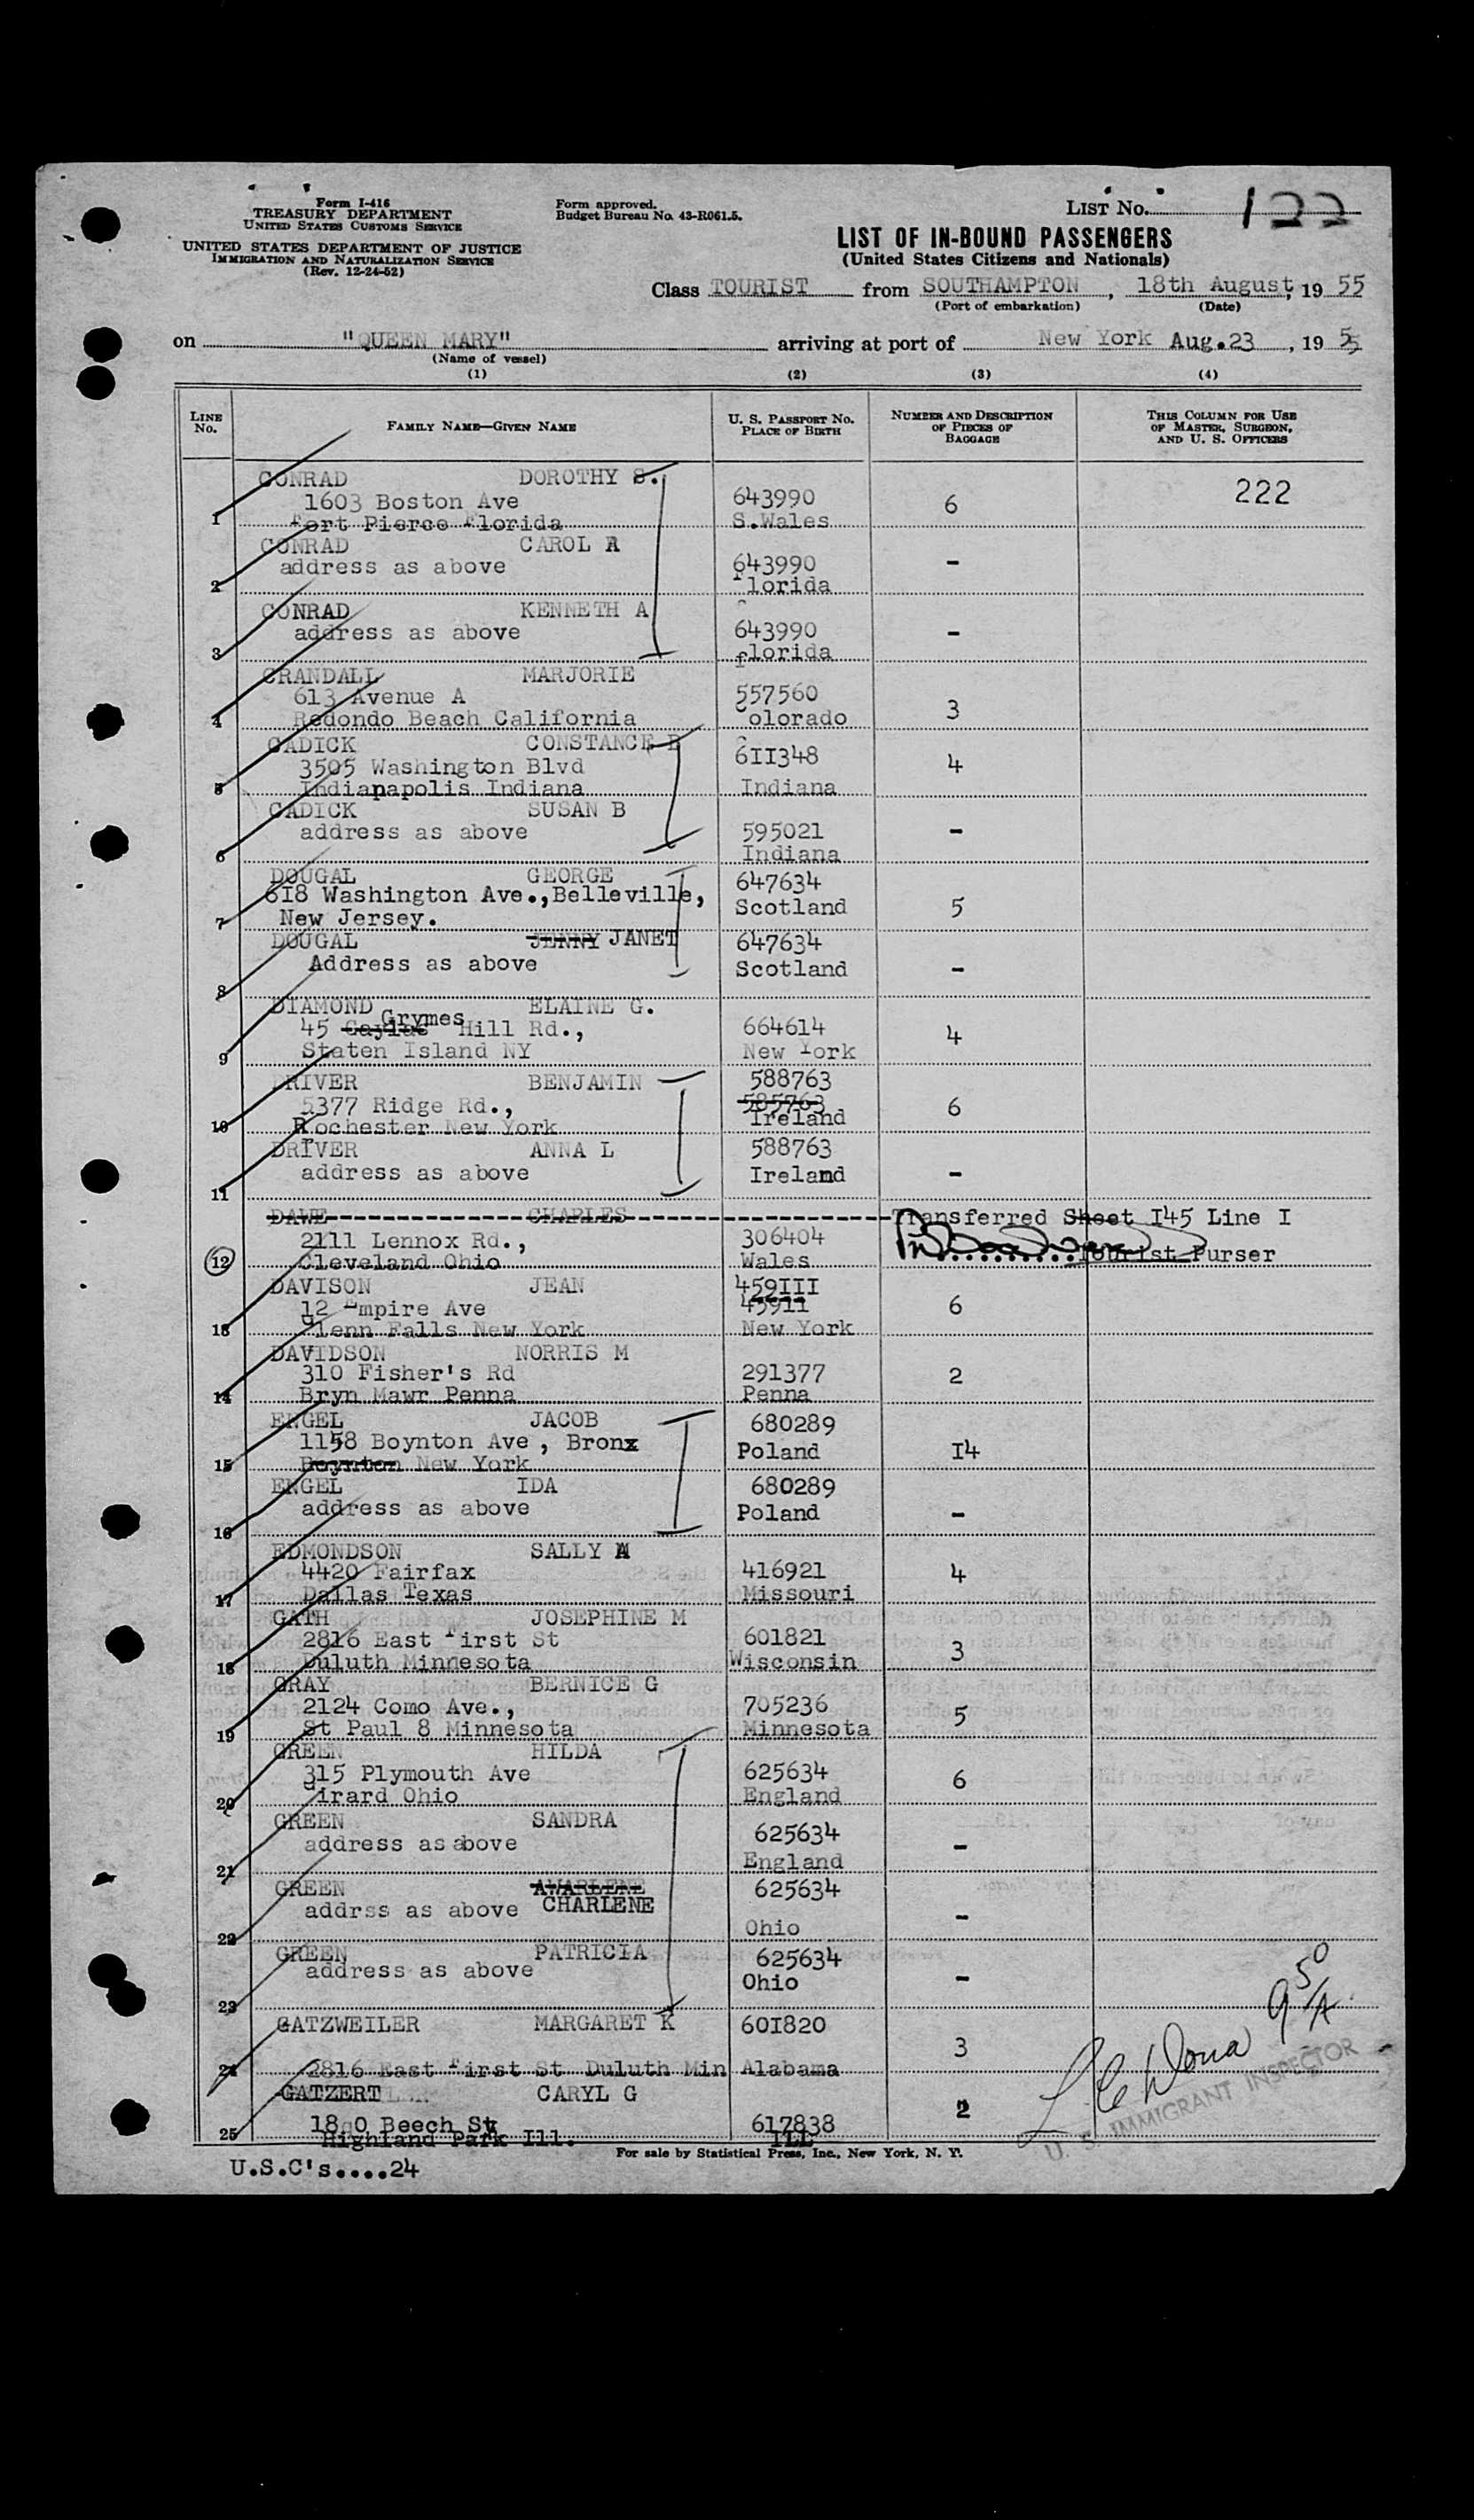 Form I-416
TREASURY DEPARTMENT
UNITED STATES CUSTOMS SERVICE
UNITED STATES DEPARTMENT OF JUSTICE
IMMIGRATION AND NATURALIZATION SERVICE
(Rev. 12-24-52)
Form approved.
Budget Bureau No. 43-R061.5.
LIST NO. 122
LIST OF IN-BOUND PASSENGERS
(United States Citizens and Nationals)
Class TOURIST from SOUTHAMPTON, 18th August, 19 55
(Port of embarkation) (Date)
on "QUEEN MARY" arriving at port of New York Aug.23, 19 55
(Name of vessel)
(1) (2) (3) (4)
LINE NO. FAMILY NAME—GIVEN NAME U. S. PASSPORT NO. PLACE OF BIRTH NUMBER AND DESCRIPTION OF PIECES OF BAGGAGE THIS COLUMN FOR USE OF MASTER, SURGEON, AND U. S. OFFICERS
CONRAD DOROTHY S. 222
1603 Boston Ave 643990 6
1 Fort Pierce Florida S.Wales
CONRAD CAROL A
address as above 643990 -
2 Florida
CONRAD KENNETH A
address as above 643990 -
3 florida
CRANDALL MARJORIE
613 Avenue A 557560 3
4 Redondo Beach California Colorado
CADICK CONSTANCE B
3505 Washington Blvd 6II348 4
5 Indianapolis Indiana Indiana
CADICK SUSAN B
address as above 595021 -
6 Indiana
DOUGAL GEORGE 647634
618 Washington Ave.,Belleville, Scotland 5
7 New Jersey.
DOUGAL JENNY JANET 647634
Address as above Scotland -
8
DIAMOND ELAINE G.
Grymes
45 Hill Rd., 664614 4
9 Staten Island NY New York
DRIVER BENJAMIN 588763
5377 Ridge Rd., 585763 6
10 Rochester New York Ireland
DRIVER ANNA L 588763
address as above Ireland -
11
DAWE CHARLES Transferred Sheet I45 Line I
2111 Lennox Rd., 306404
12 Cleveland Ohio Wales Tourist Purser
DAVISON JEAN 459III
12 Empire Ave 45911 6
13 glenn Falls New York New York
DAVIDSON NORRIS M
310 Fisher's Rd 291377 2
14 Bryn Mawr Penna Penna
ENGEL JACOB 680289
1158 Boynton Ave , Bronx Poland I4
15 Boynton New York
ENGEL IDA 680289
address as above Poland -
16
EDMONDSON SALLY A
4420 Fairfax 416921 4
17 Dallas Texas Missouri
GATH JOSEPHINE M
2816 East First St 601821 3
18 Duluth Minnesota Wisconsin
GRAY BERNICE G
2124 Como Ave., 705236 5
19 St Paul 8 Minnesota Minnesota
GREEN HILDA
315 Plymouth Ave 625634 6
20 Girard Ohio England
GREEN SANDRA
address as above 625634 -
21 England
GREEN 625634
addrss as above CHARLENE -
22 Ohio
GREEN PATRICIA 625634
address as above Ohio -
23
GATZWEILER MARGARET K 60I820 3
24 2816 East First St Duluth Min Alabama
GATZERT CARYL G 2
25 Beech St 617838
Highland Park Ill. ILL
U. S. IMMIGRANT INSPECTOR
For sale by Statistical Press, Inc., New York, N. Y.
U.S.C's....24